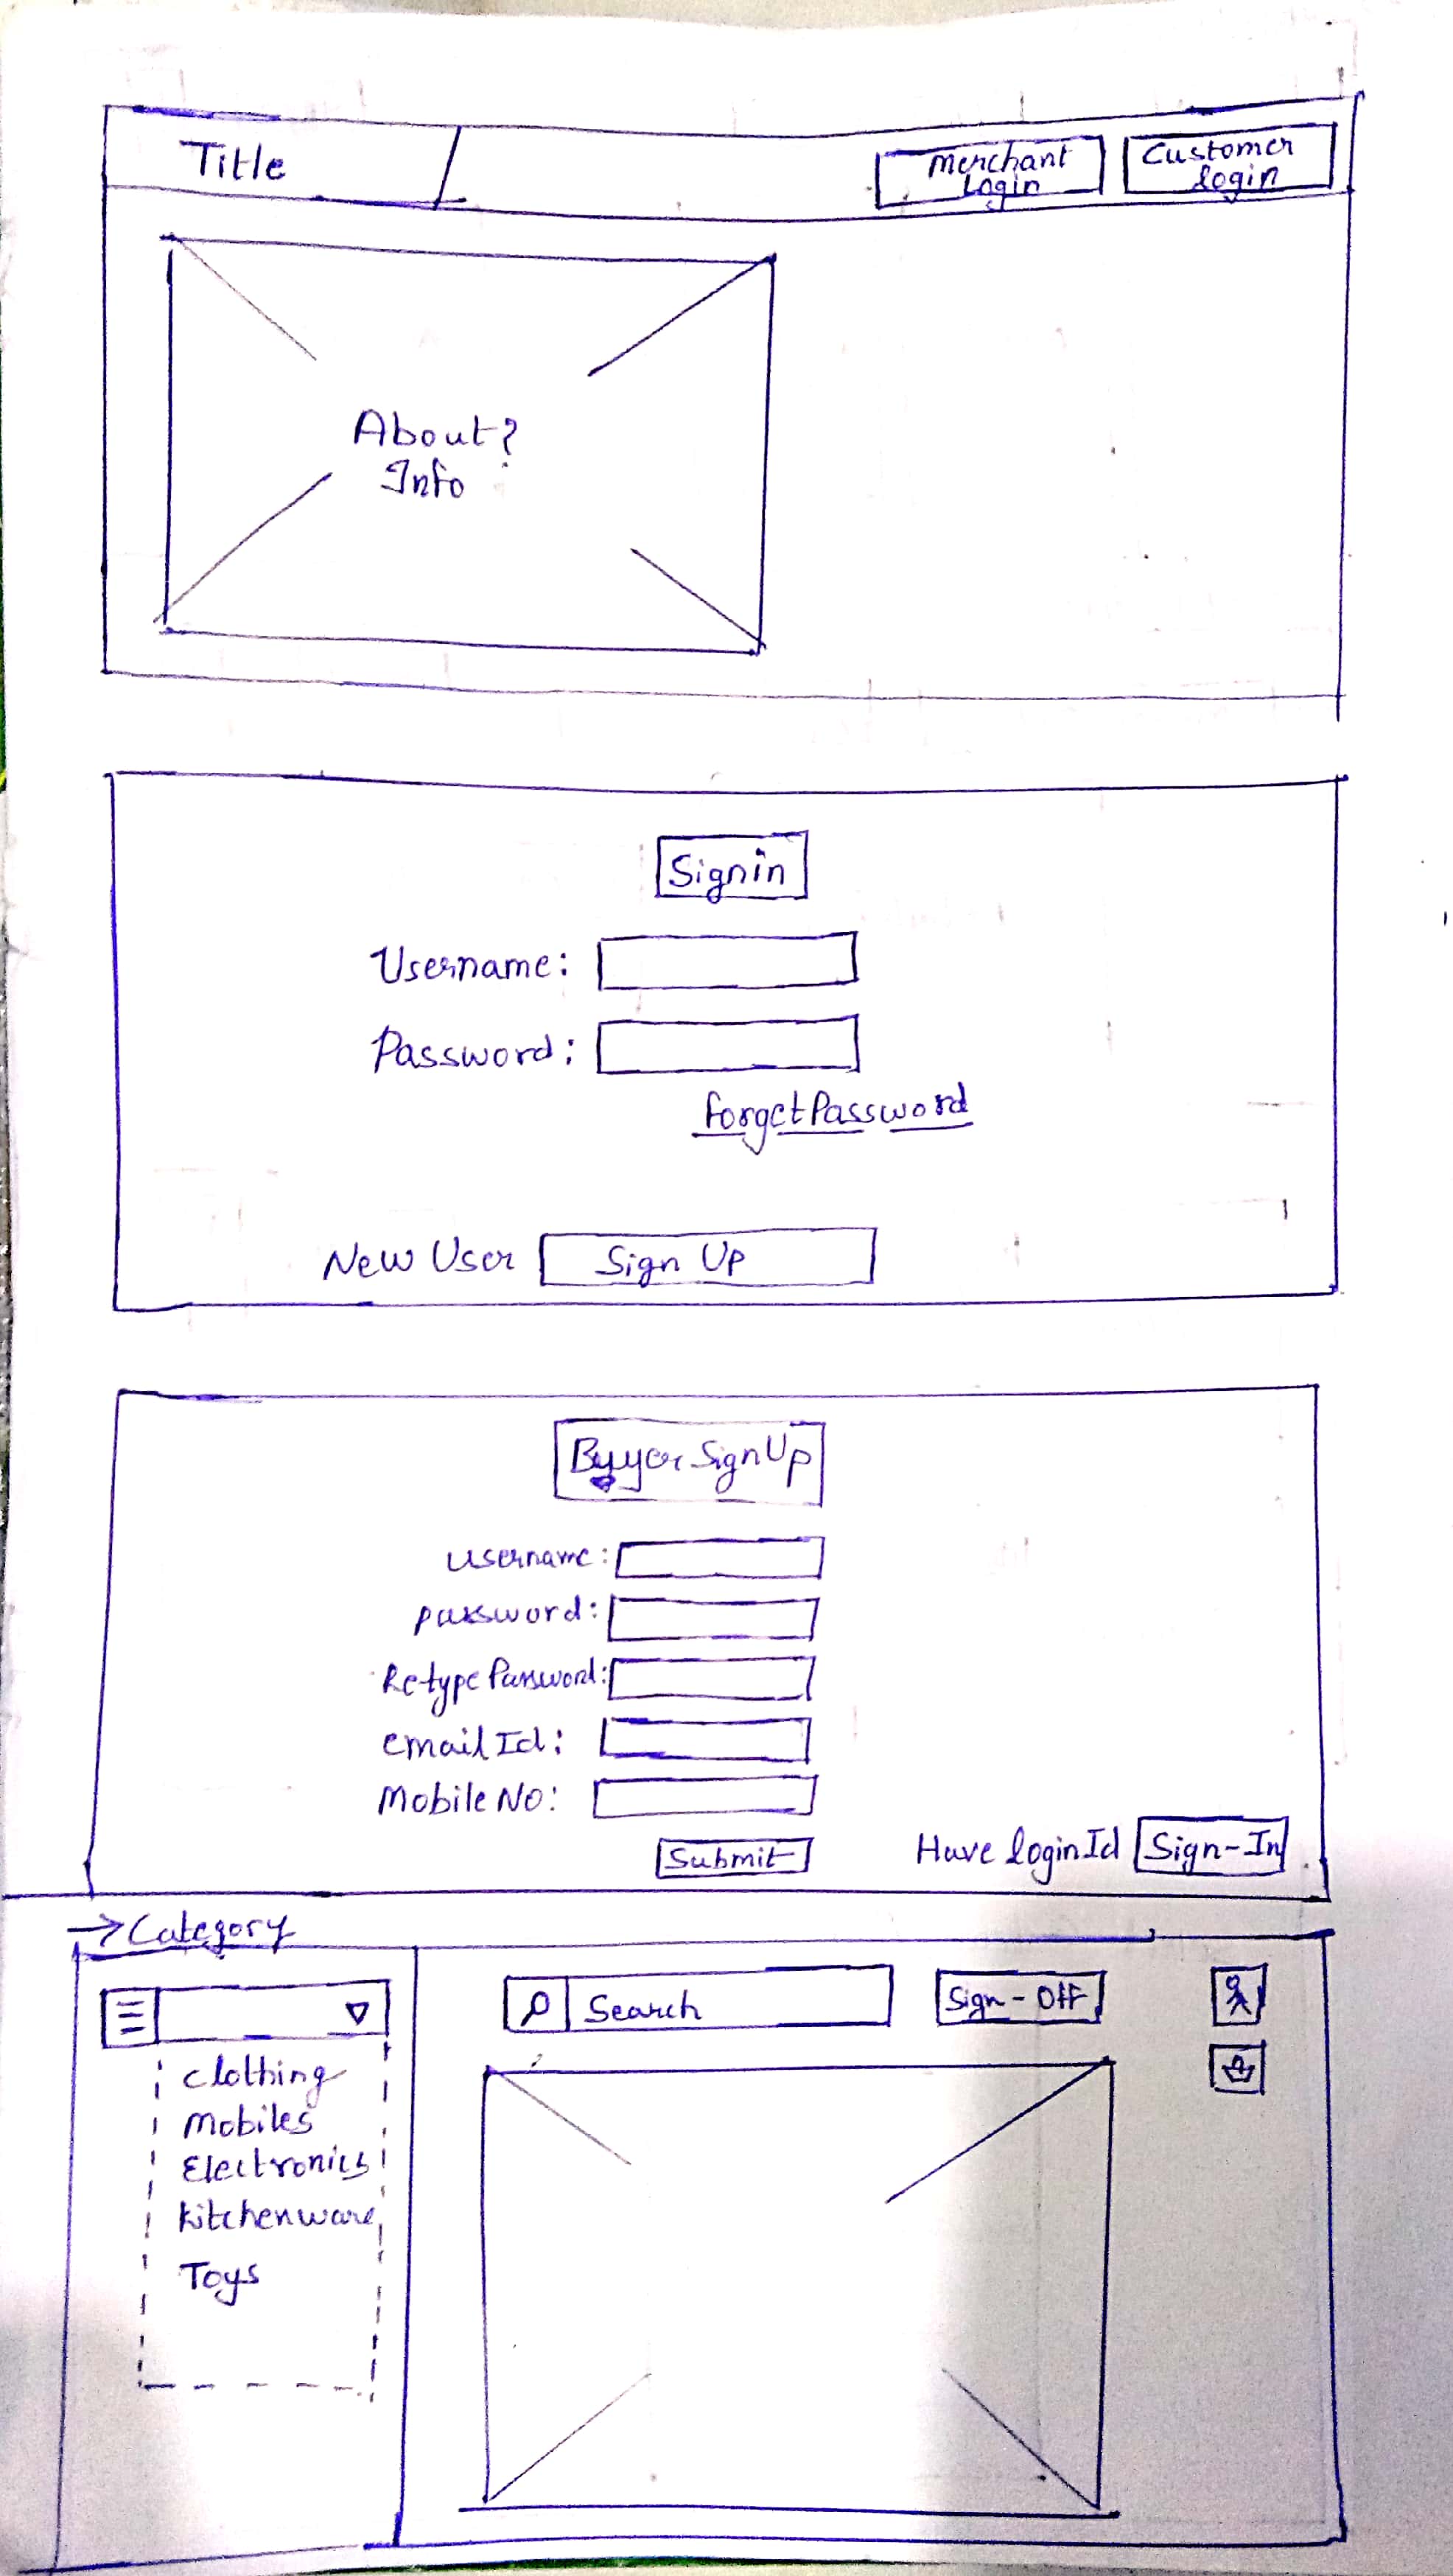 Title
Merchant
Login
Customer
login
About?
Info
Signin
Username:
Password:
forgetPassword
New User Sign Up
Buyer SignUp
username:
password:
Retype Password:
email Id:
Mobile No:
Submit
Have login Id Sign-In
→ Category
Search
Sign-Off
clothing
Mobiles
Electronics
kitchenware
Toys